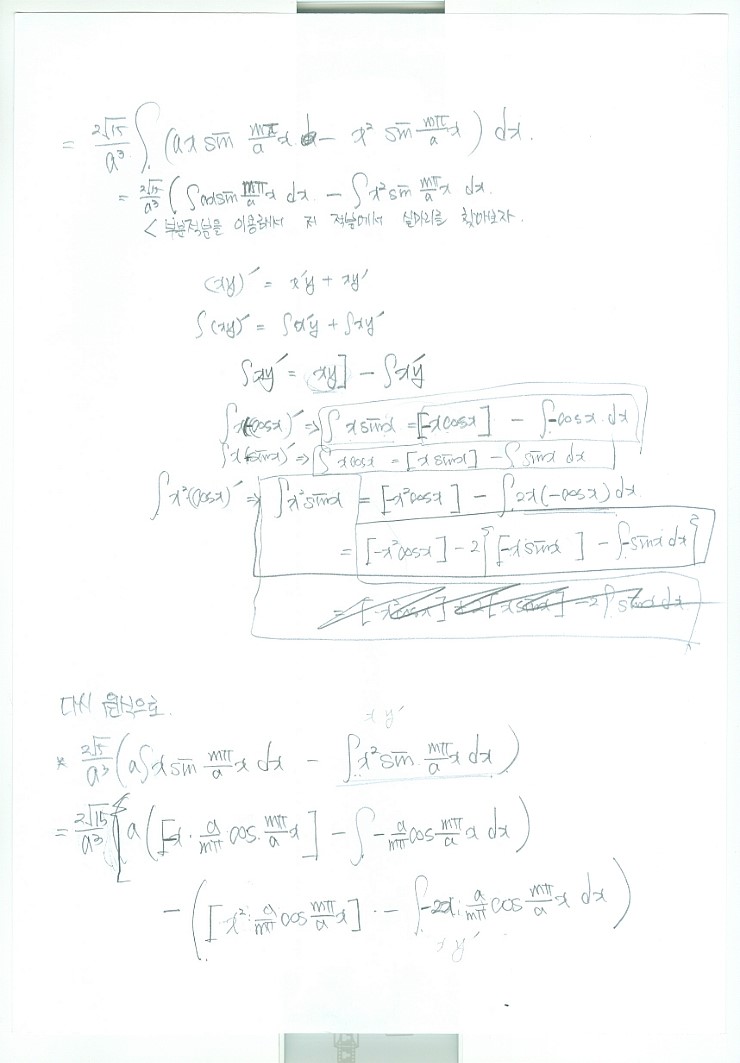 = 2√15/a³ ∫ (ax sin mπ/a x - x² sin mπ/a x) dx.
= 2√15/a³ (∫ax sin mπ/a x dx - ∫x² sin mπ/a x dx.
< 부분적분을 이용해서 저 적분에서 실마리를 찾아보자.
(xy)′ = x′y + xy′
∫(xy)′ = ∫x′y + ∫xy′
∫xy′ = xy] - ∫x′y
∫x(-cosx)′ ⇒ ∫x sinx = [-x cosx] - ∫-cosx dx
∫x(sinx)′ ⇒ ∫x cosx = [x sinx] - ∫sinx dx
∫x²(cosx)′ ⇒ ∫x² sinx = [-x² cosx] - ∫2x(-cosx) dx
= [-x² cosx] - 2{[-x sinx] - ∫-sinx dx}
다시 원식으로.
x y′
* 2√15/a³ (a∫x sin mπ/a x dx - ∫x² sin mπ/a x dx)
= 2√15/a³ [a([-x · a/mπ cos mπ/a x] - ∫-a/mπ cos mπ/a x dx)
- ([-x² · a/mπ cos mπ/a x] - ∫-2x · a/mπ cos mπ/a x dx)
x y′